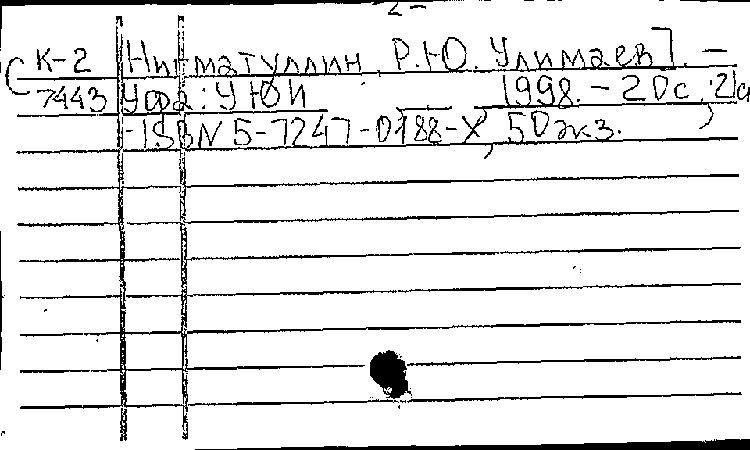 С К-2 Нигматуллин Р.Ю. Улимаев]. —
7443 Уфа: УЮИ 1998. – 20с, 21
-ISBN 5-7247-0188-X, 50экз.